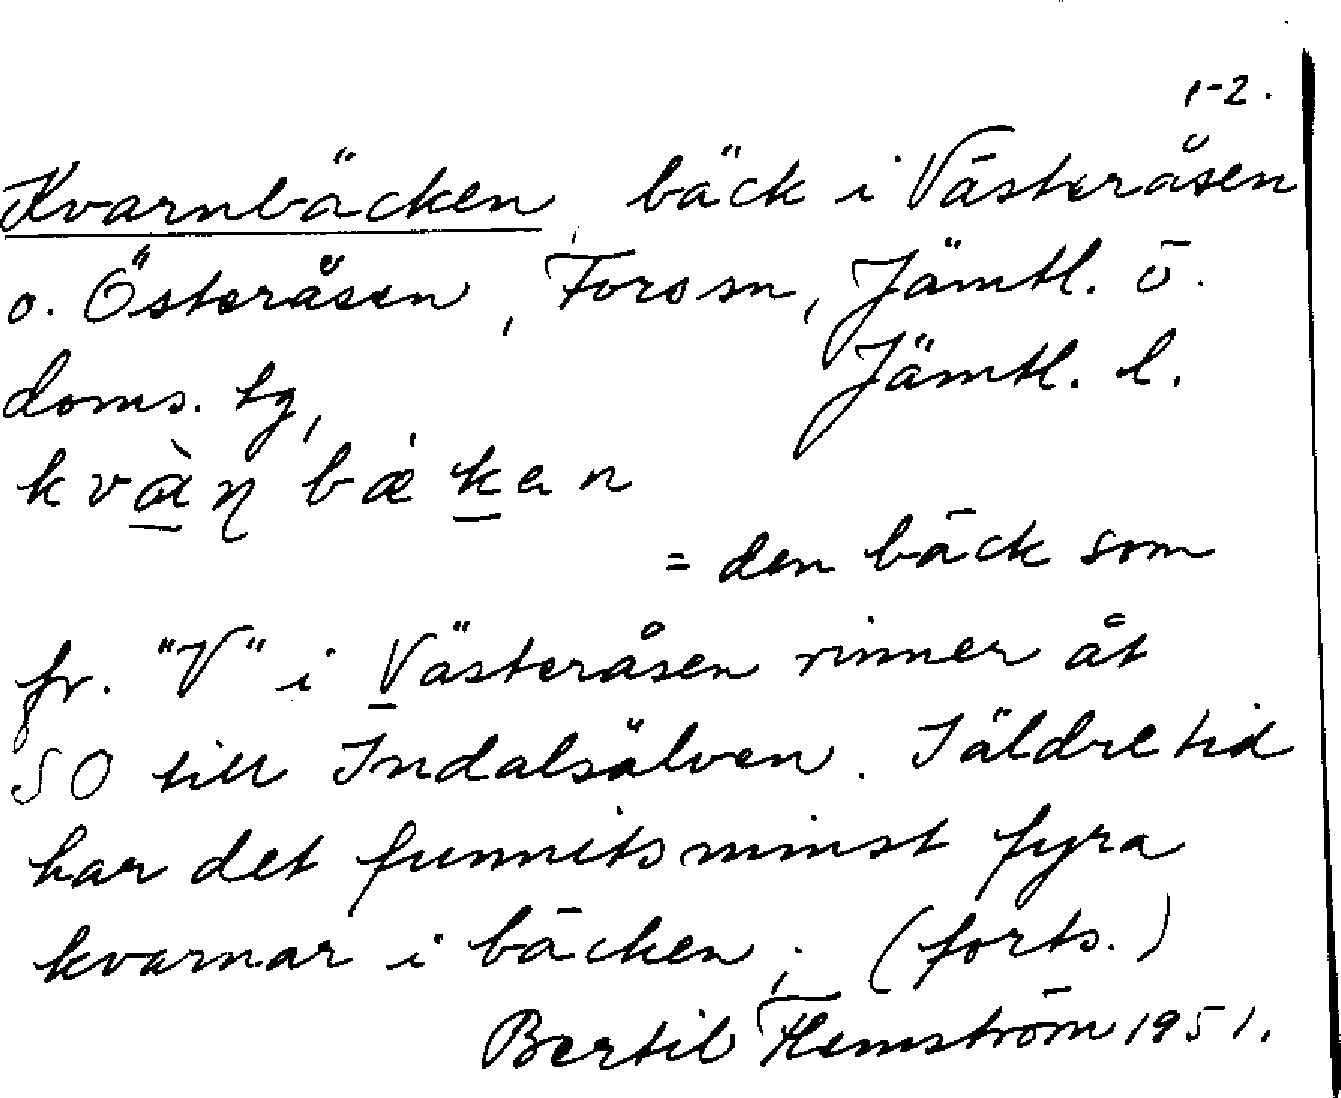 1-2.
Kvarnbäcken, bäck i Västeråsen
o. Österåsen, Fors sn, Jämtl. ö.
doms. tg, Jämtl. l.
kvàɳbækan
= den bäck som
fr. "V" i Västeråsen rinner åt
SO till Indalsälven. I äldre tid
har det funnits minst fyra
kvarnar i bäcken; (forts.)
Bertil Flemström 1951.